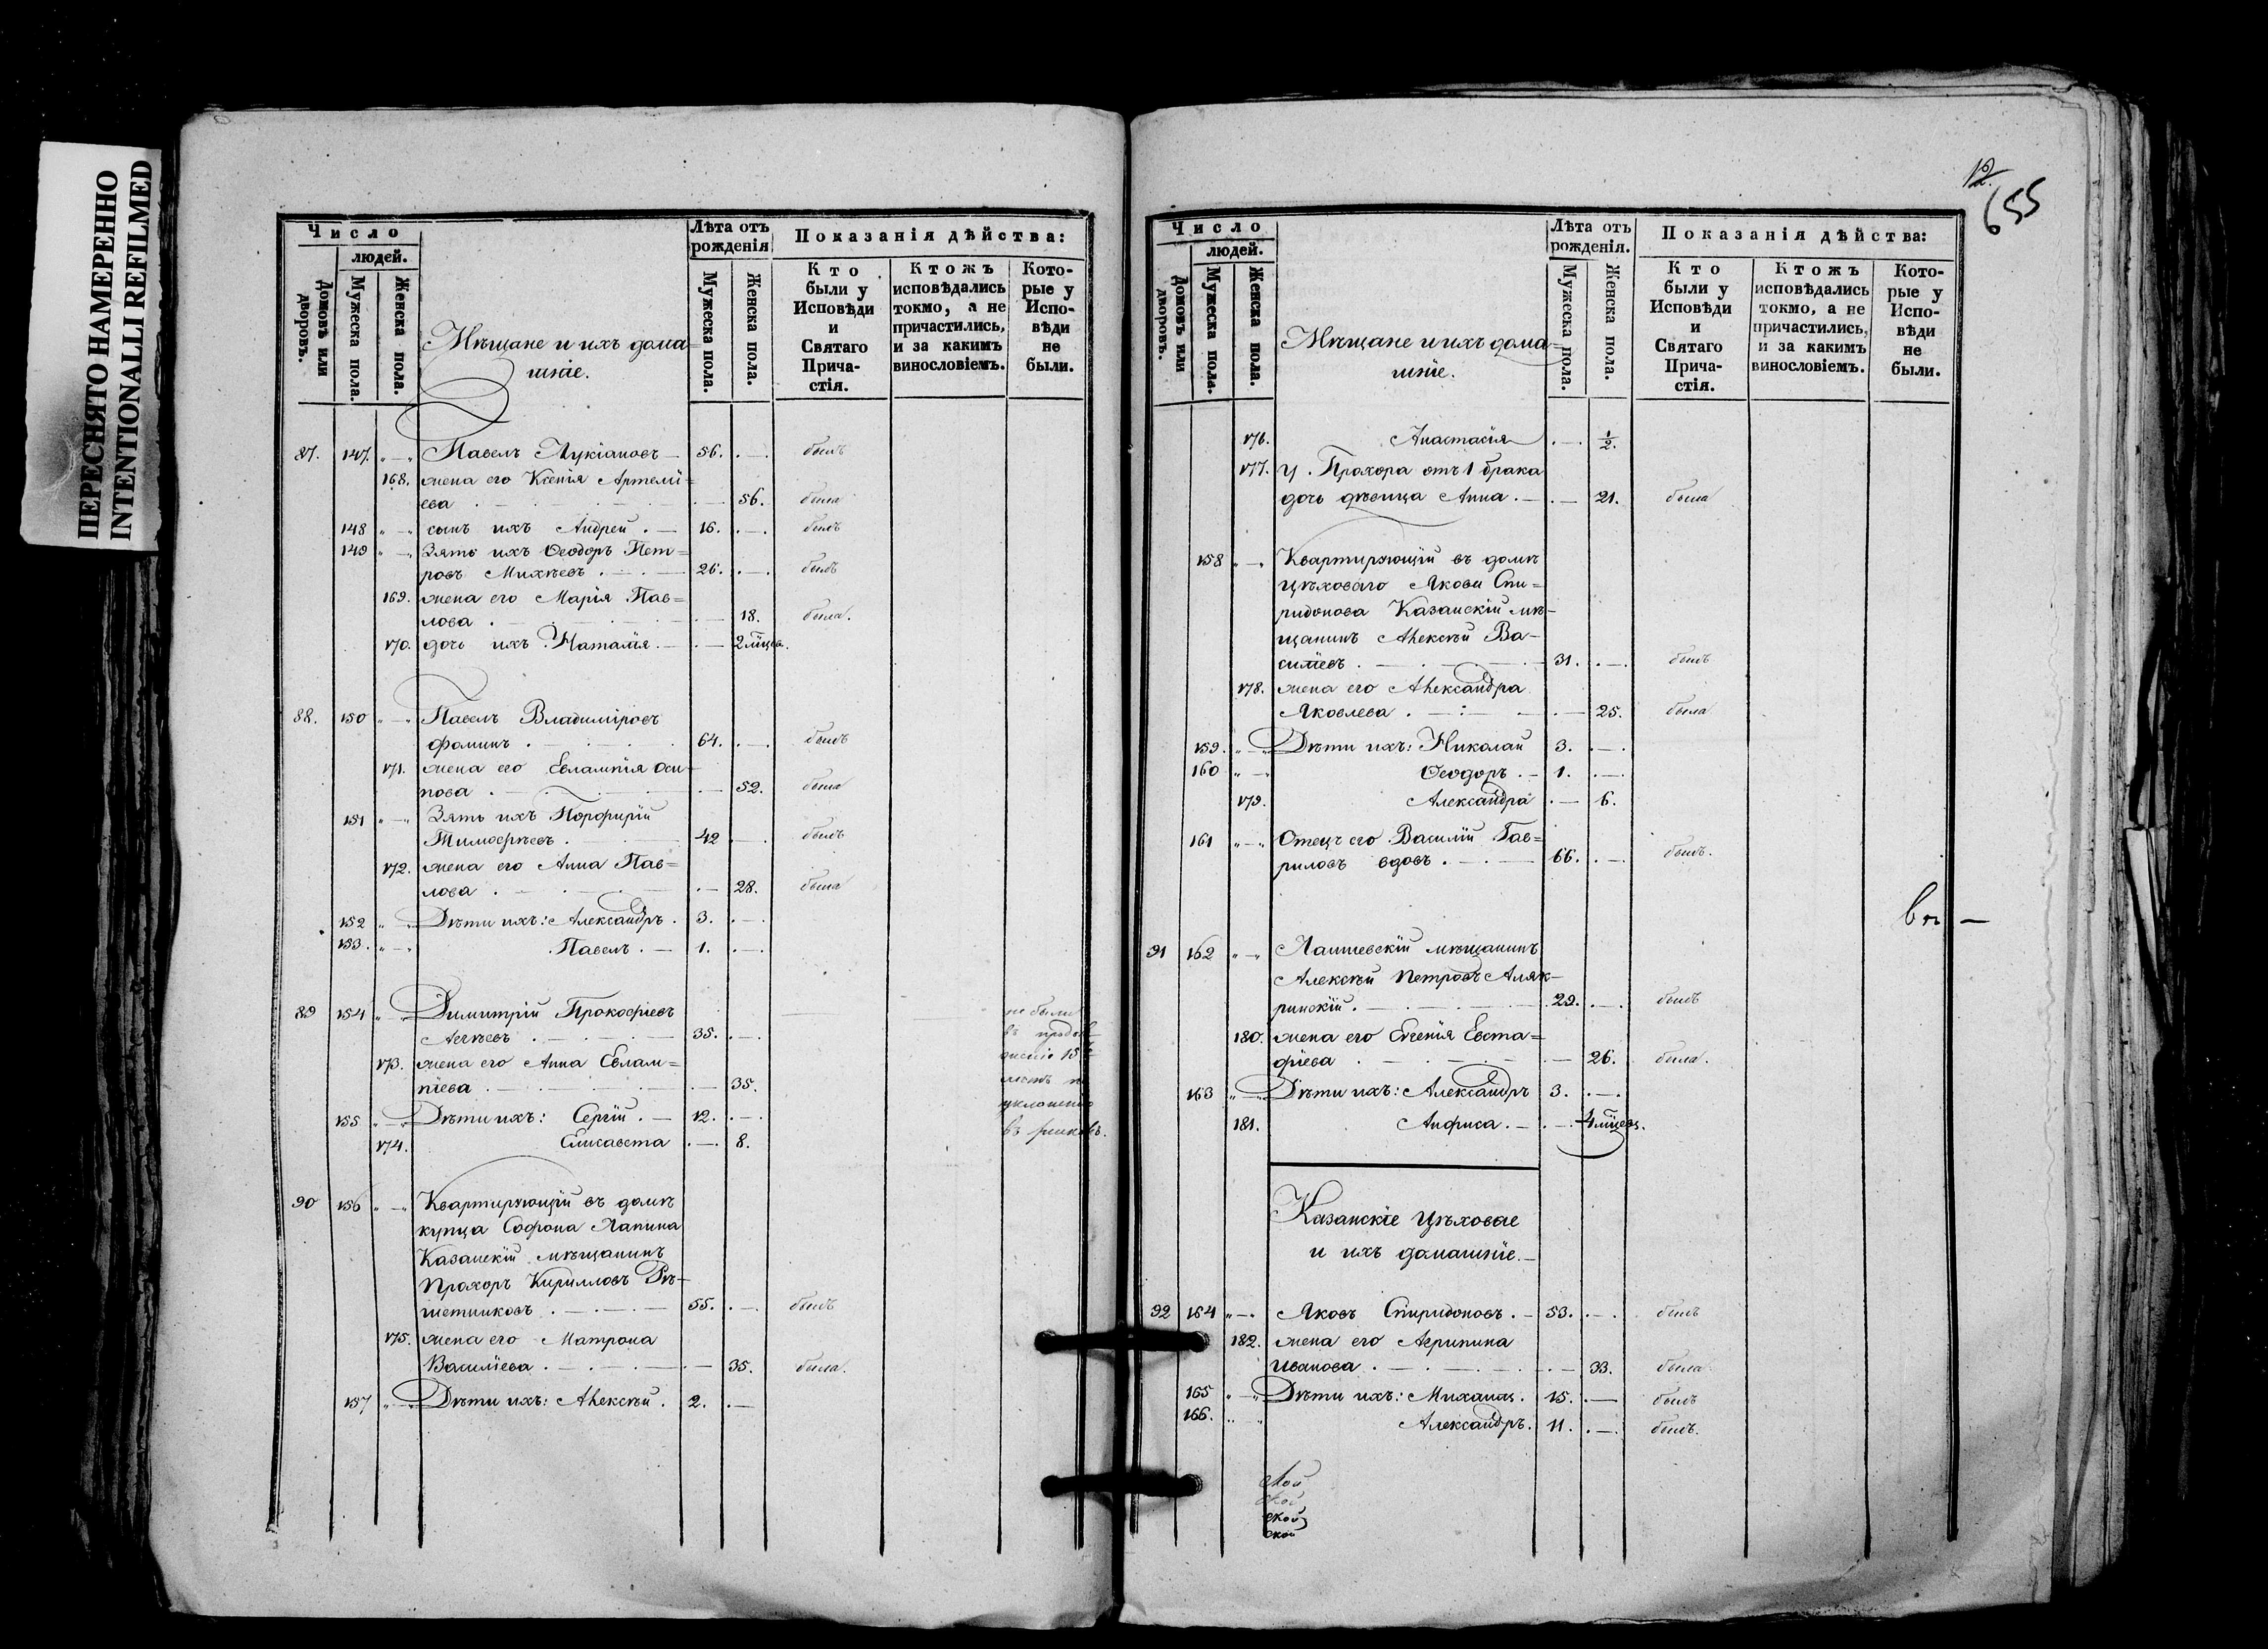 ПЕРЕСНЯТО НАМЕРЕННО
INTENTIONALLI REFILMED
Число
людей.
Домовъ или дворовъ.
Мужеска пола.
Женска пола.
Мѣщане и ихъ дома=
шніе.
Лѣта отъ рожденія
Мужеска пола.
Женска пола.
Показанія дѣйства:
Кто были у Исповѣди и Святаго Прича-стія.
Ктожъ исповѣдались токмо, а не причастились, и за какимъ винословіемъ.
Кото-рые у Испо-вѣди не были.
87. 147. „—„ Павелъ Лукіановъ — 56. .—. былъ
168. жена его Ксенія Артемі=
ева . — . — 56. была
148 „—„ сынъ ихъ Андрей . — 16. .—. былъ
149 „—„ Зять ихъ Ѳеодоръ Пет=
ровъ Михѣевъ . — . — 26. .—. былъ
169. жена его Марія Пав=
лова . — . — 18. была.
170. дочь ихъ Наталія . — .— 2 мѣцев.
88. 150 „—„ Павелъ Владиміровъ
Фоминъ . — . — . 64. .—. былъ
171. жена его Евлампія Оси-
пова . — . — 52. была
151 „—„ Зять ихъ Порфирій
Тимоѳѣевъ . — 42 .—. былъ
172. жена его Анна Пав=
лова . — . — 28. была
152 „—„ Дѣти ихъ: Александръ . 3. .—.
153. „—„ Павелъ . — 1. .—.
89 154 „—„ Димитрій Прокофіевъ не были
Агѣевъ . — . — 35. .—. въ продол
173. жена его Анна Евлам= женіе 15
піева . — . — 35. лѣтъ по
155 „—„ Дѣти ихъ: Сергій . — 12. .—. уклоненію
174. Елисавета .—. 8. въ расколъ.
90 156 „—„ Квартирующій въ домѣ
купца Софона Лапина
Казанскій мѣщанинъ
Прохоръ Кирилловъ Рѣ-
шетниковъ . — . — 55. .—. былъ
175. жена его Матрона
Василіева . — . — 35. была.
157 „—„ Дѣти ихъ: Алексѣй . 2. .—
655
Число
людей.
Домовъ или дворовъ.
Мужеска пола.
Женска пола.
Мѣщане и ихъ дома=
шніе.
Лѣта отъ рожденія.
Мужеска пола.
Женска пола.
Показанія дѣйства:
Кто были у Исповѣди и Святаго Прича-стія.
Ктожъ исповѣдались токмо, а не причастились, и за какимъ винословіемъ.
Кото-рые у Испо-вѣди не были.
176. Анастасія .—. 1/2.
177. У. Прохора отъ 1 брака
дочь дѣвица Анна . — .— 21. была
158 „—„ Квартирующій въ домѣ
цѣховаго Якова Спи=
ридонова Казанскій мѣ-
щанинъ Алексѣй Ва-
силіевъ . — . — 31. .—. былъ
178. жена его Александра
Яковлева . — . — 25. была
159. „—„ Дѣти ихъ: Николай 3. .—.
160 „—„ Ѳеодоръ . — 1. .—.
179. Александра .— 6.
161 „—„ Отецъ его Василій Гав=
риловъ вдовъ . — . — 66. .—. былъ.
91 162 „—„ Лаишевскій мѣщанинъ
Алексѣй Петровъ Аляк-
ринскій . — . — 29. .—. былъ
180. жена его Евгенія Евста=
фіева . — . — 26. была.
163 „—„ Дѣти ихъ: Александръ 3. .—.
181. Анфиса . — .—. 4 мѣцев.
Казанскіе Цѣховые
и ихъ домашніе. —
92 164 „—„ Яковъ Спиридоновъ . — 53. .—. былъ
182. жена его Агрипина
Иванова . — . — 33. была
165 „—„ Дѣти ихъ: Михаилъ . 15. .— былъ
166. „—„ Александръ . 11. .—. былъ.
ской
ской
ской
ской